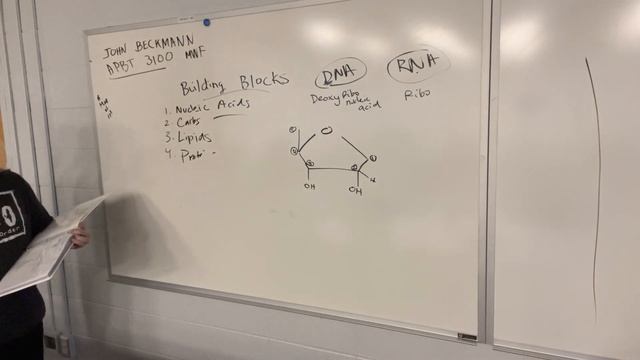 JOHN BECKMANN
APBT 3100 MWF
Building Blocks
1. Nucleic Acids
2. Carbs
3. Lipids
4. Proti
DNA
Deoxy Ribo
nucleic
acid
RNA
Ribo
O
OH
OH